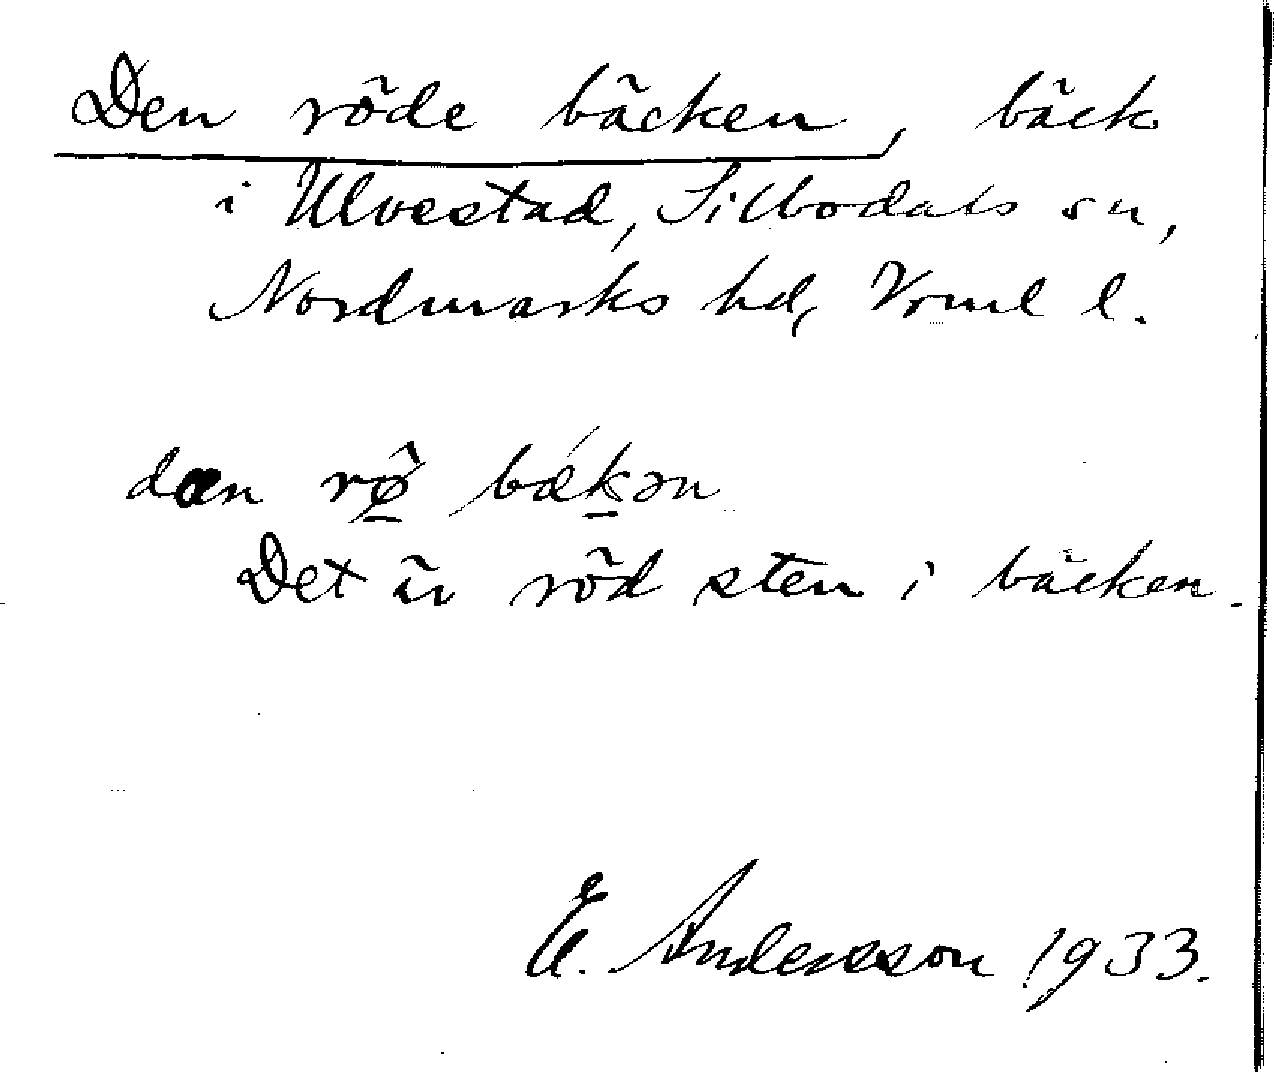 Den röde bäcken, bäck
i Ulvestad, Silbodals sn,
Nordmarks hd, Vrml l.
dæn rø̂ bǽkən
Det är röd sten i bäcken.
E. Andersson 1933.